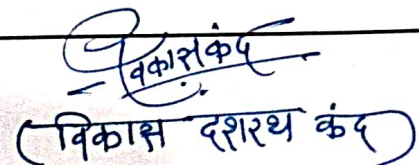 विकासकंद
(विकास दशरथ कंद)